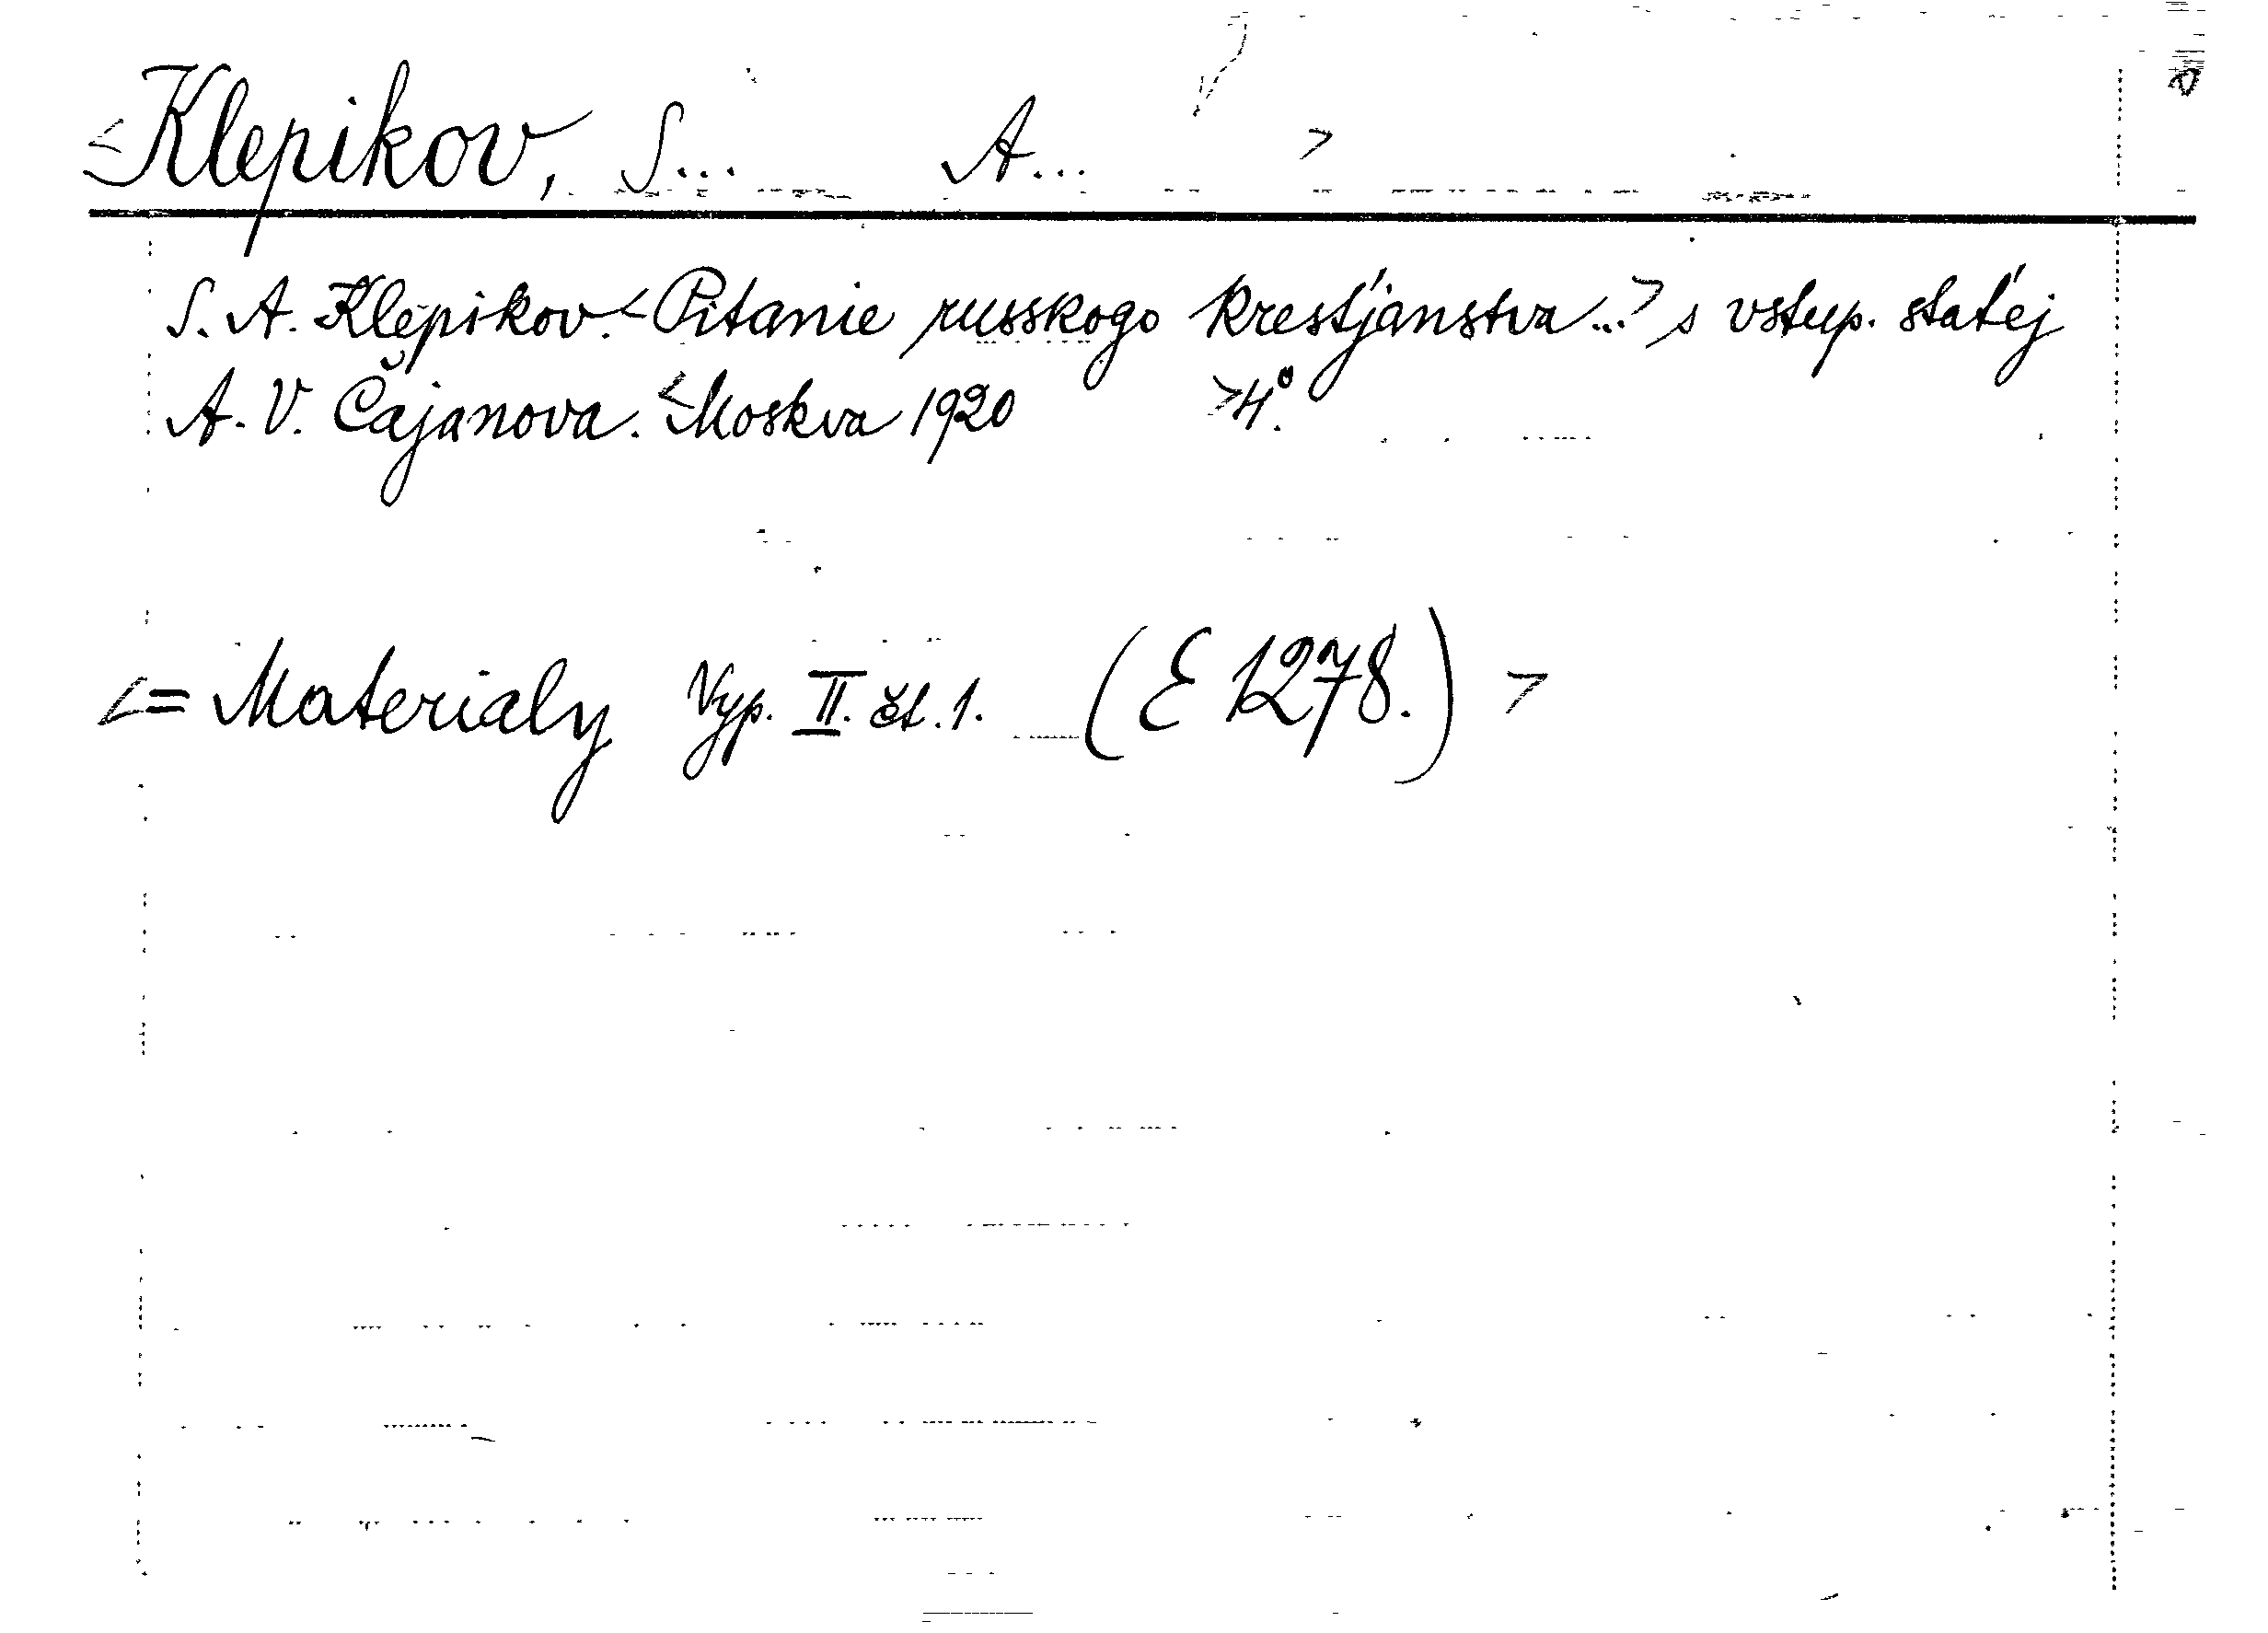 <Klepikov, S... A... >
S. A. Klepikov. <Pitanie russkogo krest'janstva...> s vstup. stat'ej
A. V. Čajanova. <Moskva 1920 >4°.
<= Materialy Vyp. II. čt. 1. (E 1278.) >